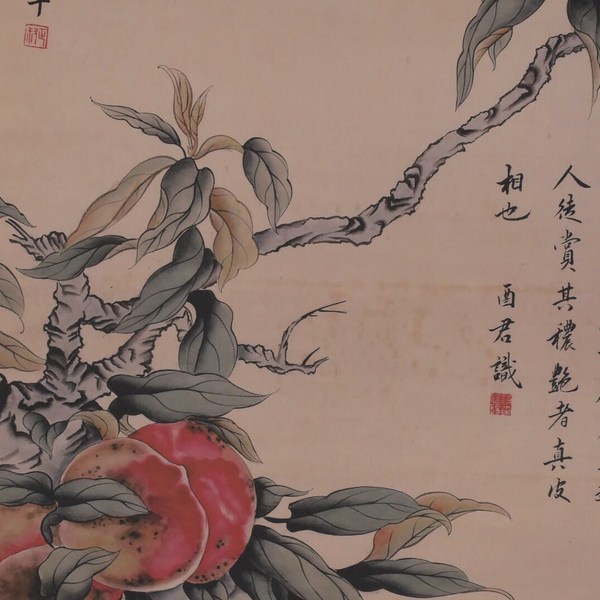 人徒賞其穠艷者真皮
相也
酉君識